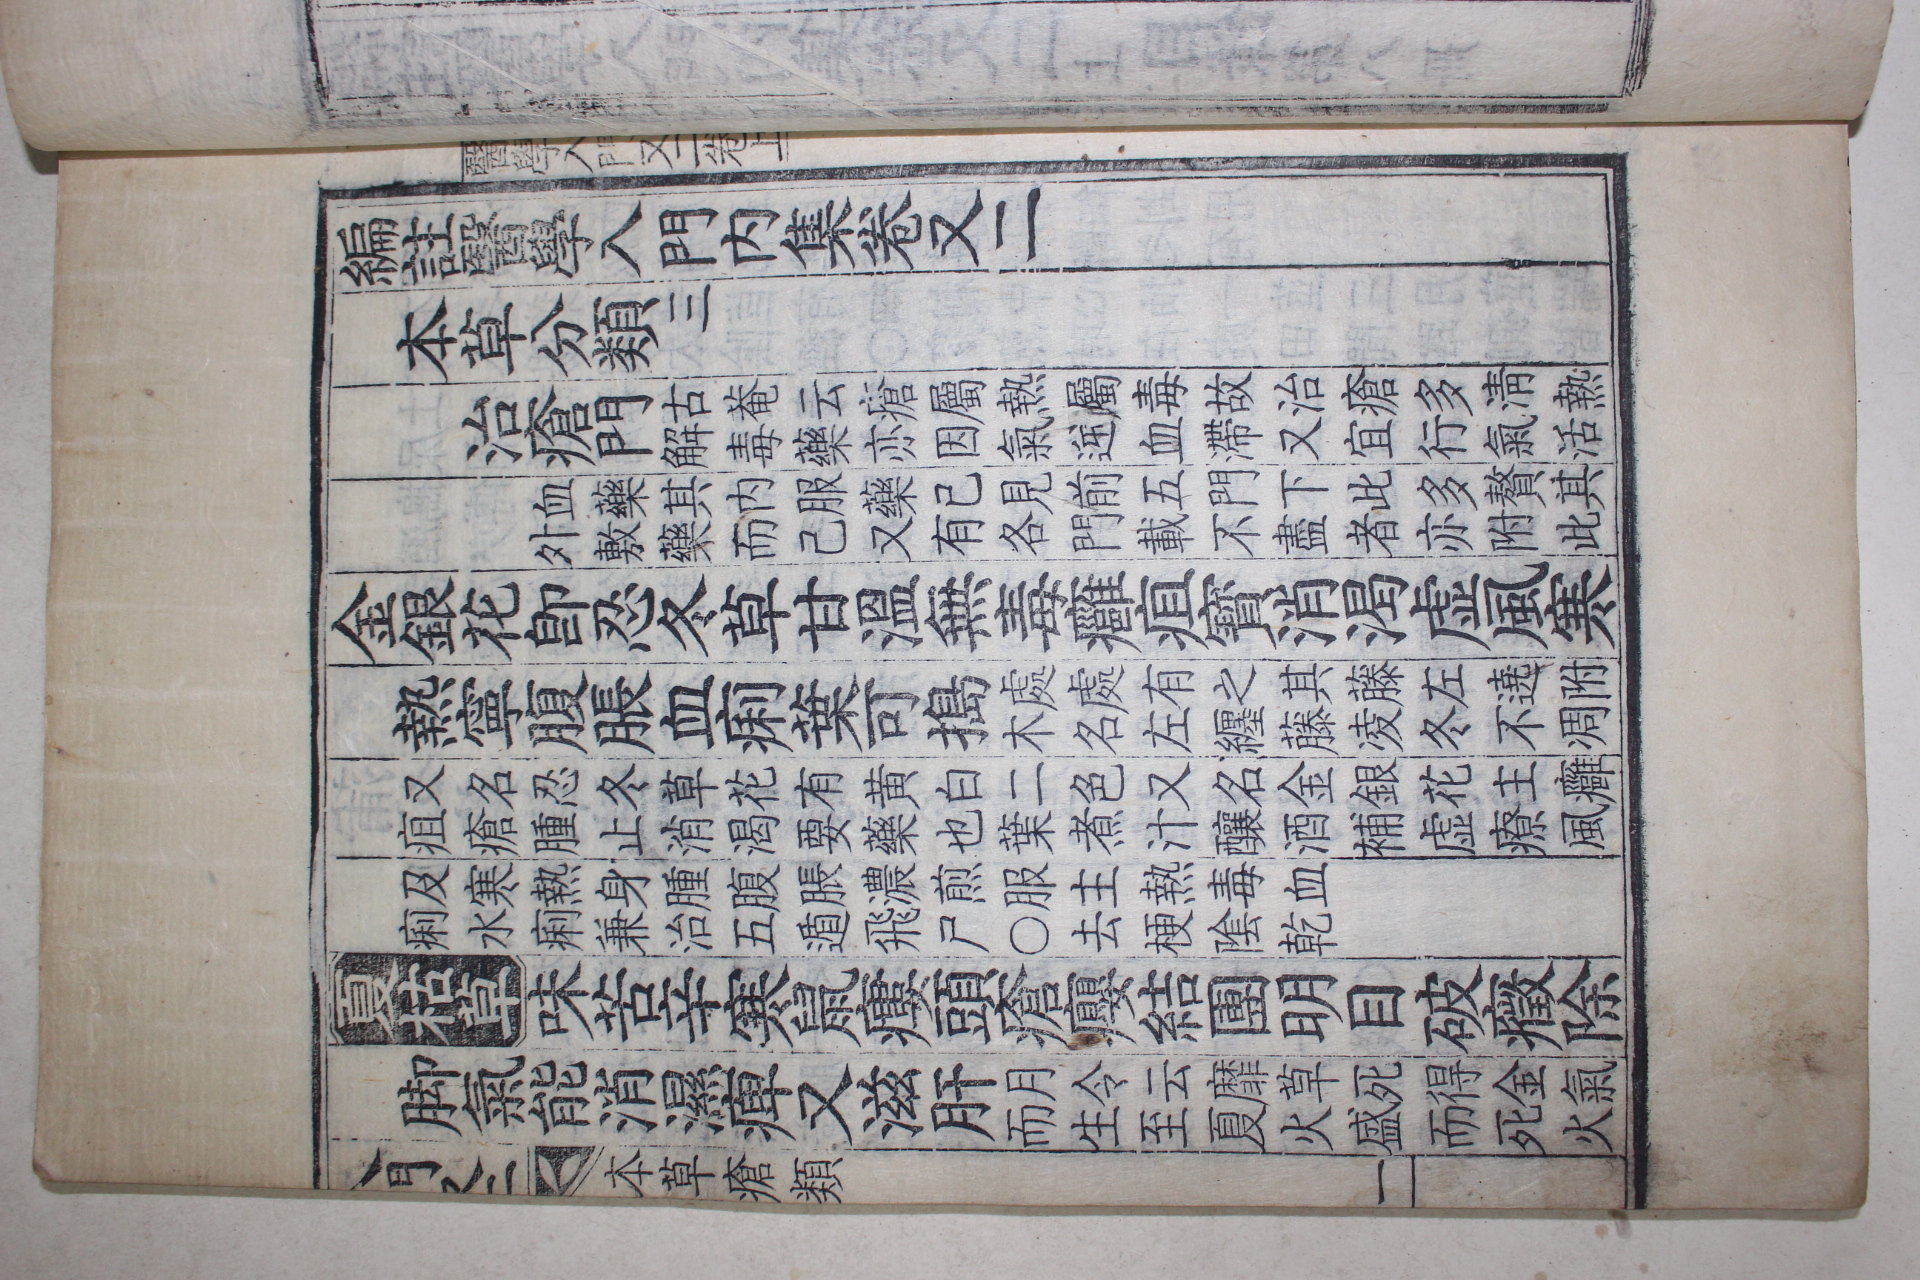 醫學入門又二卷上
編註醫學入門内集卷又二
本草分類三
治瘡門
古菴云瘡屬熱屬毒故治瘡多清熱
解毒藥亦因氣逆血滯又宜行氣活
血藥其内服藥已見前五門下此多贅其
外敷藥而己又有各門載不盡者亦附此
金銀花卽忍冬草甘溫無毒癰疽寶消渴虛風寒
熱寧腹脹血痢葉可搗
處處有之其藤左遶附
木名左纏藤凌冬不凋
又名忍冬草花有黃白二色又名金銀花主癰
疽瘡腫止消渴要藥也葉煮汁釀酒補虛療風
及寒熱身腫腹脹濃煎服主熱毒血
痢水痢兼治五遁飛尸○去梗陰乾
夏枯草味苦辛寒鼠瘻頭瘡癭結團明目破癥除
脚氣能消濕痺又滋肝
月令云靡草死得金氣
而生至夏火盛而死火
門又二
本草瘡類
一